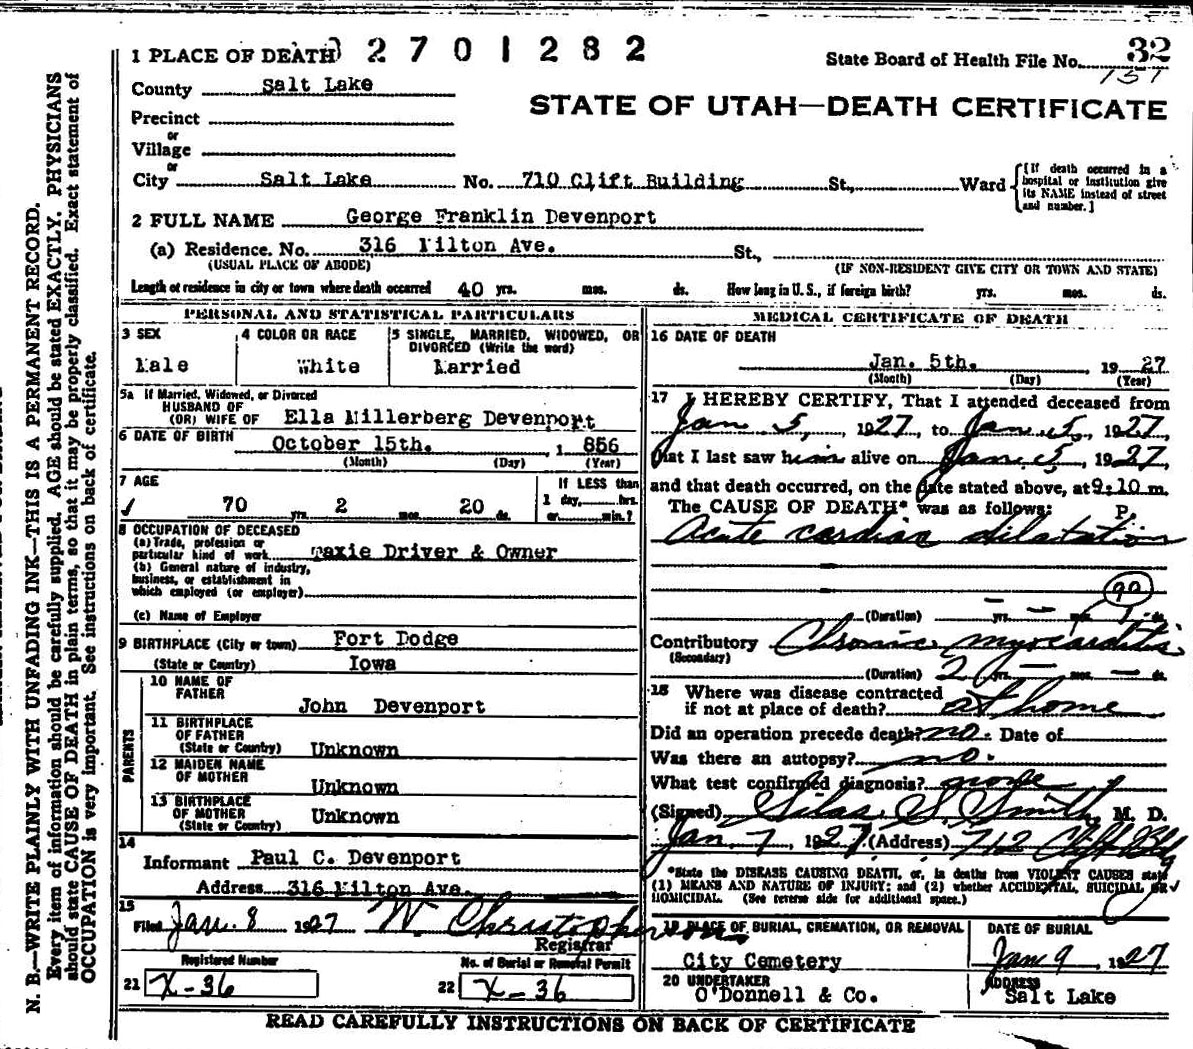 1 PLACE OF DEATH 02701282
State Board of Health File No. 32
157
County Salt Lake
STATE OF UTAH—DEATH CERTIFICATE
Precinct
or
Village
or
City Salt Lake No. 710 Clift Building St., Ward
[If death occurred in a
hospital or institution give
its NAME instead of street
and number.]
2 FULL NAME George Franklin Devenport
(a) Residence. No. 316 Milton Ave. St.,
(USUAL PLACE OF ABODE) (IF NON-RESIDENT GIVE CITY OR TOWN AND STATE)
Length of residence in city or town where death occurred 40 yrs. mos. ds. How long in U. S., if foreign birth? yrs. mos. ds.
PERSONAL AND STATISTICAL PARTICULARS
3 SEX
Male
4 COLOR OR RACE
White
5 SINGLE, MARRIED, WIDOWED, OR
DIVORCED (Write the word)
Married
5a If Married, Widowed, or Divorced
HUSBAND OF
(OR) WIFE OF Ella Millerberg Devenport
6 DATE OF BIRTH October 15th. , 1 856
(Month) (Day) (Year)
7 AGE
70 yrs. 2 mos. 20 ds.
If LESS than
1 day, hrs.
or min.?
8 OCCUPATION OF DECEASED
(a) Trade, profession or
particular kind of work Taxie Driver & Owner
(b) General nature of industry,
business, or establishment in
which employed (or employer)
(c) Name of Employer
9 BIRTHPLACE (City or town) Fort Dodge
(State or Country) Iowa
PARENTS
10 NAME OF
FATHER
John Devenport
11 BIRTHPLACE
OF FATHER
(State or Country) Unknown
12 MAIDEN NAME
OF MOTHER
Unknown
13 BIRTHPLACE
OF MOTHER
(State or Country) Unknown
14
Informant Paul C. Devenport
Address 316 Milton Ave.
15
Filed Jan. 8 1927 W. Christopherson
Registrar
Registered Number
21 X-36
No. of Burial or Removal Permit
22 X-36
MEDICAL CERTIFICATE OF DEATH
16 DATE OF DEATH
Jan. 5th. 19 27
(Month) (Day) (Year)
17 I HEREBY CERTIFY, That I attended deceased from
Jan 5, 1927, to Jan 5, 1927,
that I last saw him alive on Jan 5, 1927,
and that death occurred, on the date stated above, at 9:10 m.
The CAUSE OF DEATH* was as follows: P.
Acute cardiac dilatation
90
(Duration) — yrs. — mos. 1 ds.
Contributory Chronic myocarditis
(Secondary)
(Duration) 20 yrs. — mos. — ds.
18 Where was disease contracted
if not at place of death? at home
Did an operation precede death? no. Date of
Was there an autopsy? no.
What test confirmed diagnosis? none
(Signed) Silas S. Smith, M. D.
Jan 7, 1927 (Address) 712 Clift Bldg
*State the DISEASE CAUSING DEATH, or, in deaths from VIOLENT CAUSES state
(1) MEANS AND NATURE OF INJURY; and (2) whether ACCIDENTAL, SUICIDAL OR
HOMICIDAL. (See reverse side for additional space.)
19 PLACE OF BURIAL, CREMATION, OR REMOVAL
City Cemetery
DATE OF BURIAL
Jan 9, 1927
20 UNDERTAKER
O'Donnell & Co.
ADDRESS
Salt Lake
READ CAREFULLY INSTRUCTIONS ON BACK OF CERTIFICATE
N. B.—WRITE PLAINLY WITH UNFADING INK—THIS IS A PERMANENT RECORD.
Every item of information should be carefully supplied. AGE should be stated EXACTLY. PHYSICIANS
should state CAUSE OF DEATH in plain terms, so that it may be properly classified. Exact statement of
OCCUPATION is very important. See instructions on back of certificate.